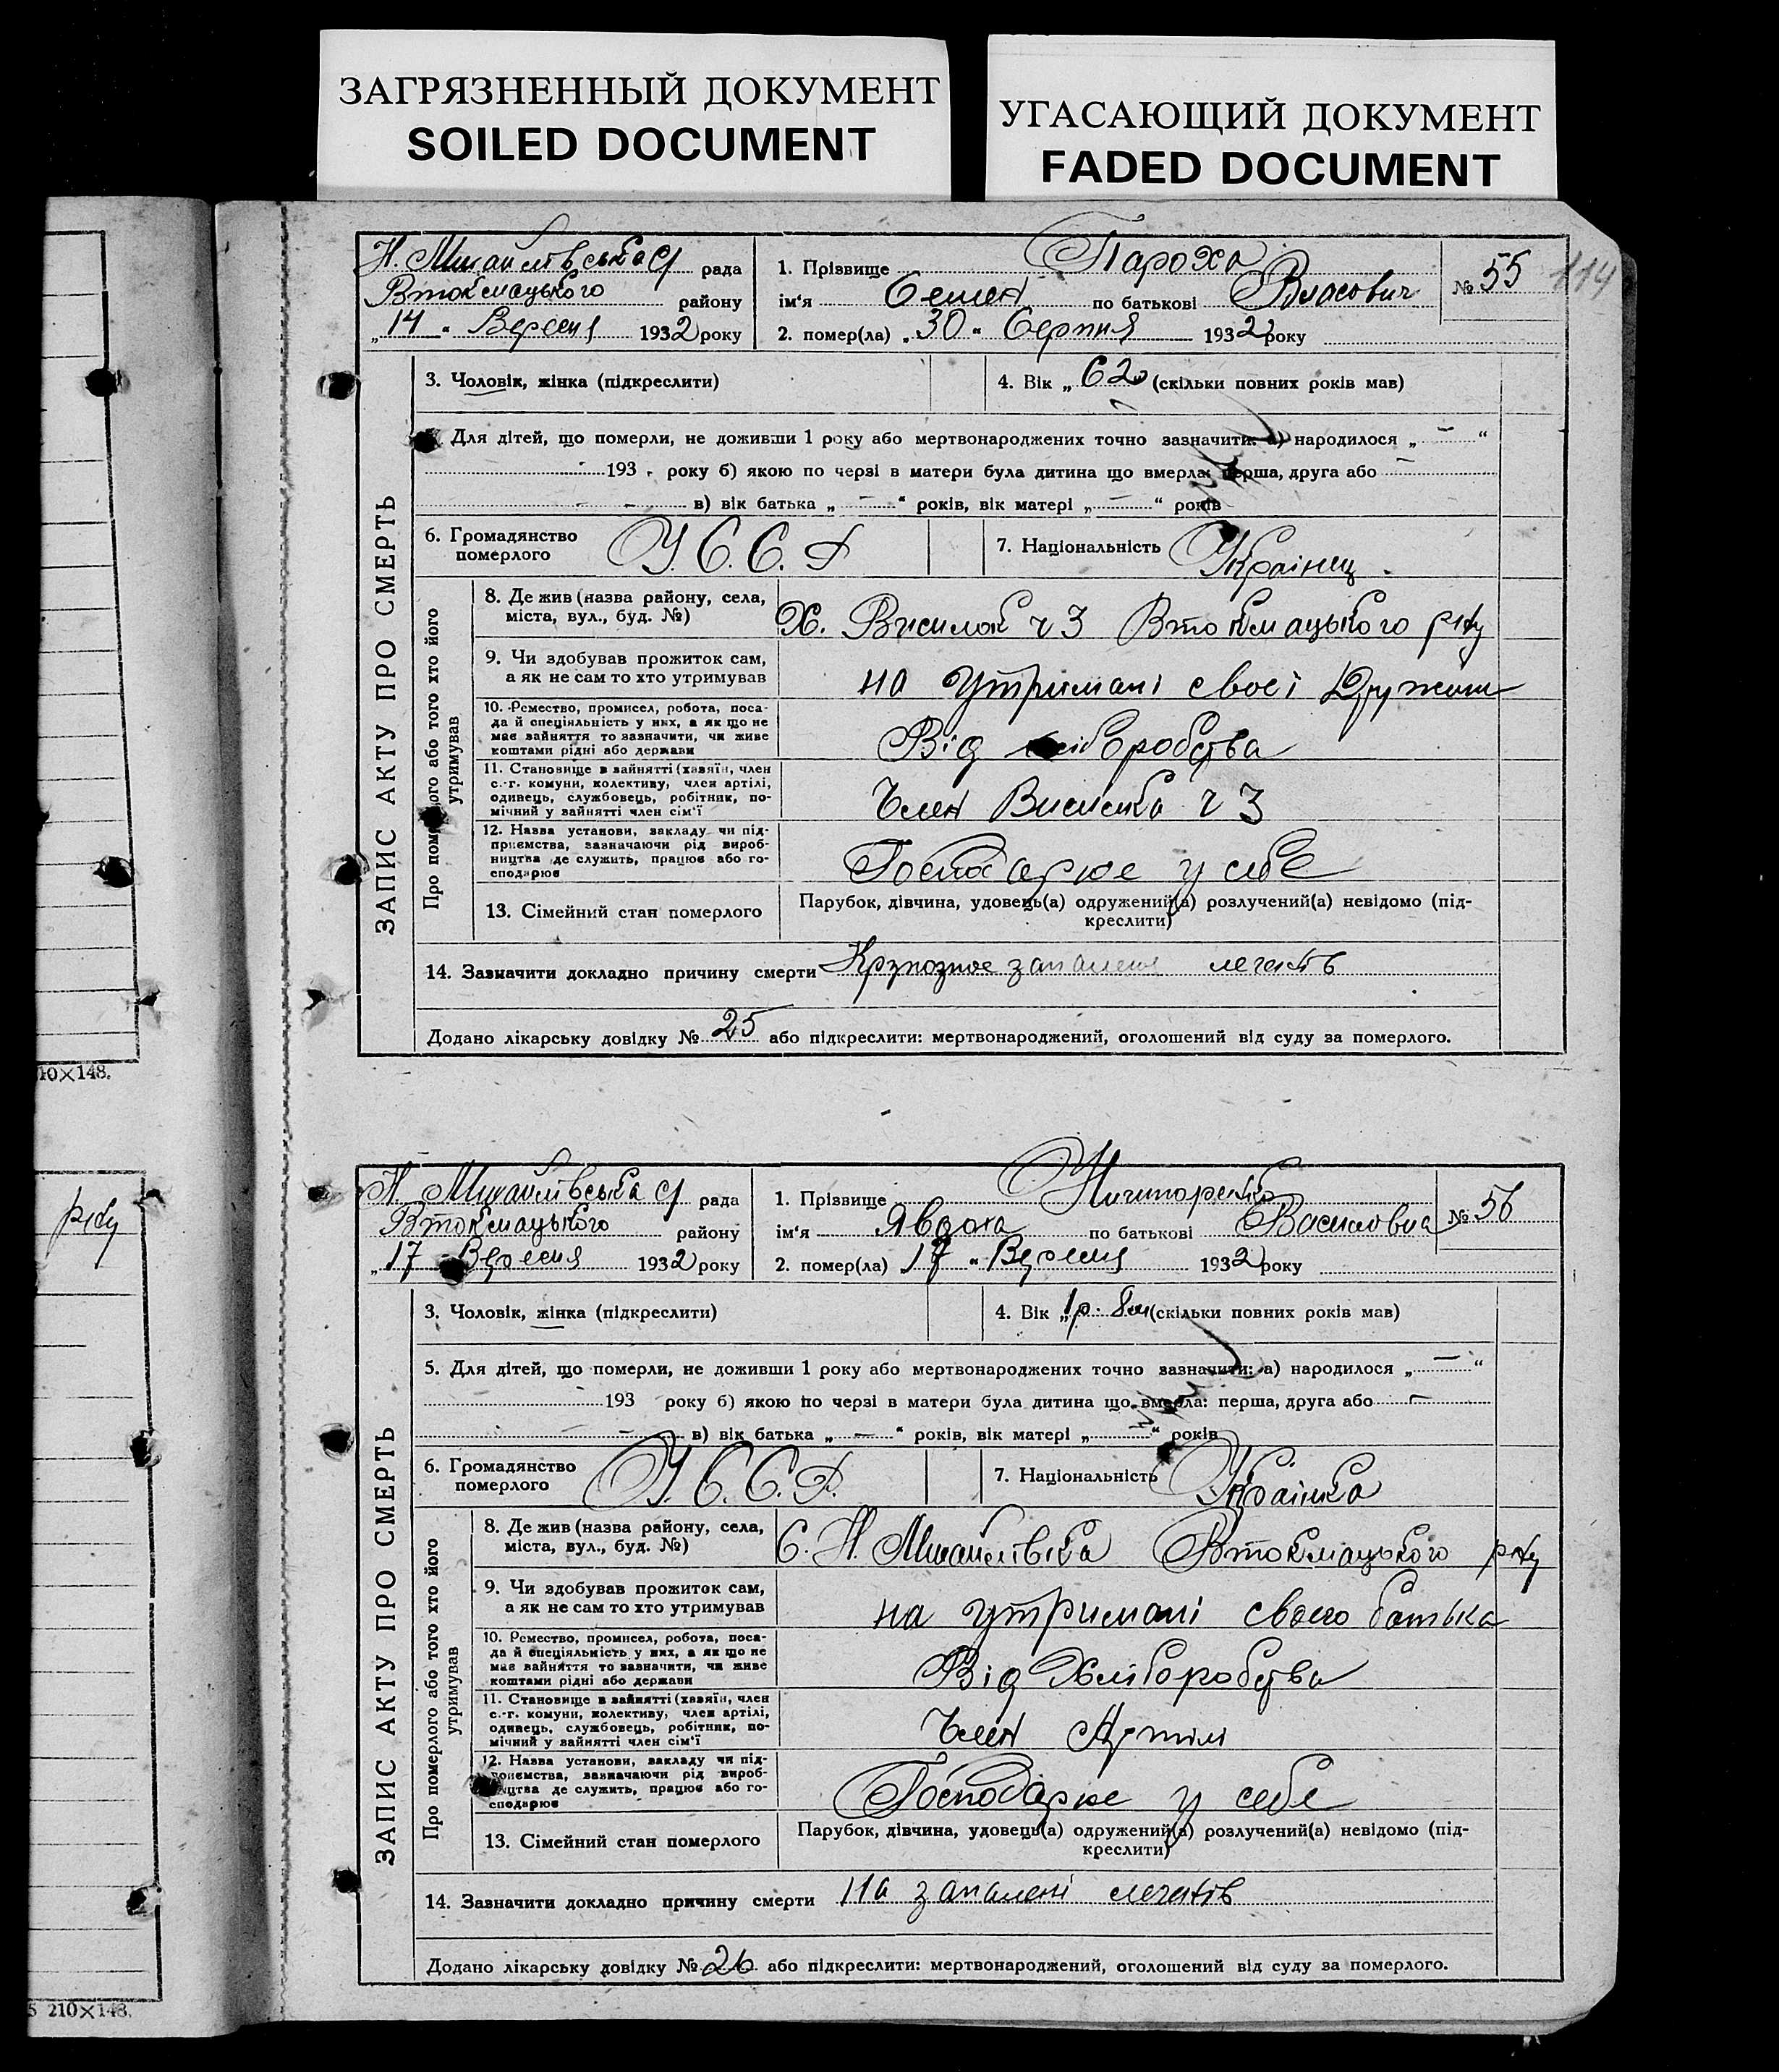 ЗАГРЯЗНЕННЫЙ ДОКУМЕНТ
SOILED DOCUMENT
УГАСАЮЩИЙ ДОКУМЕНТ
FADED DOCUMENT
Н. Михайлівська с/ рада
Втокмацького району
„14“ Вересня 1932 року
1. Прізвище Пароха
ім‘я Семен по батькові Власович
2. помер(ла) „30“ Серпня 1932 року
№ 55
114
ЗАПИС АКТУ ПРО СМЕРТЬ
3. Чоловік, жінка (підкреслити)
4. Вік „62“ (скільки повних років мав)
Для дітей, що померли, не доживши 1 року або мертвонароджених точно зазначити: а) народилося „ — “
193 року б) якою по черзі в матери була дитина що вмерла: перша, друга або —
— в) вік батька „ — “ років, вік матері „ — “ років
6. Громадянство
померлого
У. С. С. Р
7. Національність Українец
Про померлого або того хто його
утримував
8. Де жив (назва району, села,
міста, вул., буд. №)
Х. Виселок ч 3 Втокмацького р-ну
9. Чи здобував прожиток сам,
а як не сам то хто утримував
на утримані своєї Дружини
10. Ремество, промисел, робота, поса-
да й спеціяльність у них, а як що не
має зайняття то зазначити, чи живе
коштами рідні або держави
Від хліборобства
11. Становище в зайнятті (хазяїн, член
с.-г. комуни, колективу, член артілі,
одинець, службовець, робітник, по-
мічний у зайнятті член сім‘ї
Член Виселка ч 3
12. Назва установи, закладу чи під-
приємства, зазначаючи рід вироб-
ництва де служить, працює або го-
сподарює
Господарює у себе
13. Сімейний стан померлого
Парубок, дівчина, удовець(а) одружений(а) розлучений(а) невідомо (під-
креслити)
14. Зазначити докладно причину смерти Крупозное запаленя легенів
Додано лікарську довідку № 25 або підкреслити: мертвонароджений, оголошений від суду за померлого.
10×148.
Н. Михайлівська с/ рада
Втокмацького району
„17“ Вересня 1932 року
1. Прізвище Ничипоренко
ім‘я Явдоха по батькові Василовна
2. помер(ла) 17 “ Вересня 1932 року
№ 56
р-ну
ЗАПИС АКТУ ПРО СМЕРТЬ
3. Чоловік, жінка (підкреслити)
4. Вік „1р. 8м (скільки повних років мав)
5. Для дітей, що померли, не доживши 1 року або мертвонароджених точно зазначити: а) народилося „ — “
193 року б) якою по черзі в матери була дитина що вмерла: перша, друга або —
— в) вік батька „ — “ років, вік матері „ — “ років
6. Громадянство
померлого
У. С. С. Р.
7. Національність Українка
Про померлого або того хто його
утримував
8. Де жив (назва району, села,
міста, вул., буд. №)
С. Н. Михайлівка Втокмацького р-ну
9. Чи здобував прожиток сам,
а як не сам то хто утримував
на утримані свого батька
10. Ремество, промисел, робота, поса-
да й спеціяльність у них, а як що не
має зайняття то зазначити, чи живе
коштами рідні або держави
Від Хліборобства
11. Становище в зайнятті (хазяїн, член
с.-г. комуни, колективу, член артілі,
одинець, службовець, робітник, по-
мічний у зайнятті член сім‘ї
Член Артілі
12. Назва установи, закладу чи під-
приємства, зазначаючи рід вироб-
ництва де служить, працює або го-
сподарює
Господарює у себе
13. Сімейний стан померлого
Парубок, дівчина, удовець(а) одружений(а) розлучений(а) невідомо (під-
креслити)
14. Зазначити докладно причину смерти На запалені легенів
Додано лікарську довідку № 26 або підкреслити: мертвонароджений, оголошений від суду за померлого.
5 210×148.